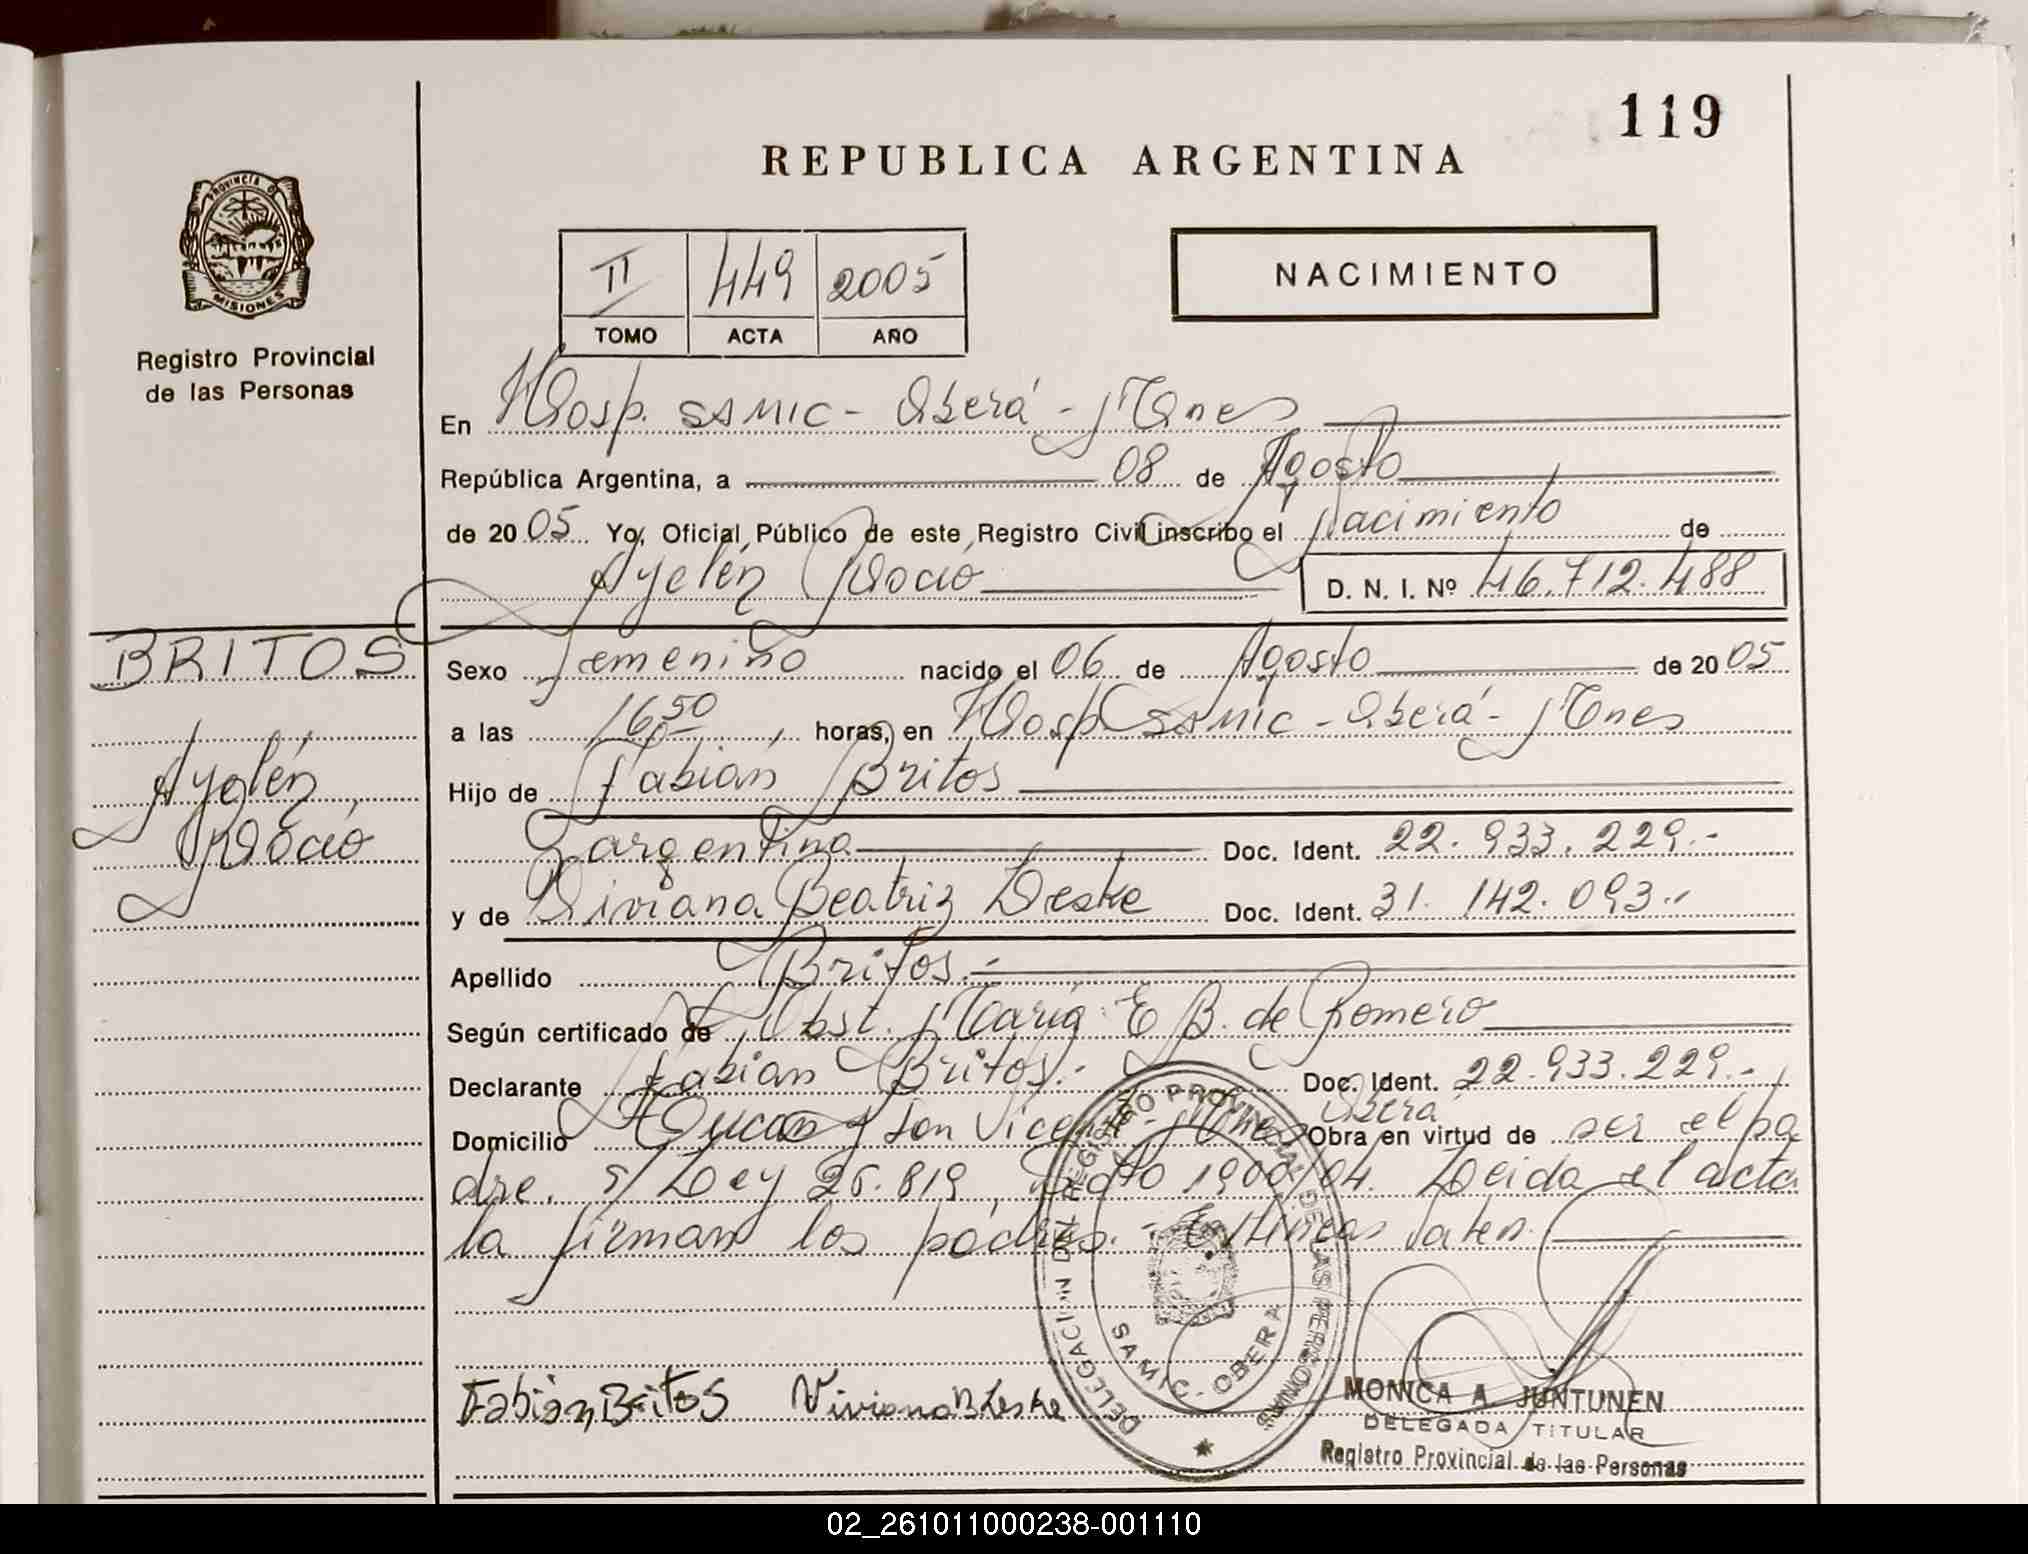 119
REPUBLICA ARGENTINA
PROVINCIA D
MISIONES
Registro Provincial
de las Personas
II 449 2005
TOMO ACTA AÑO
NACIMIENTO
En Hosp. SAMIC - Oberá - Mnes
República Argentina, a 08 de Agosto
de 2005 Yo, Oficial Público de este Registro Civil inscribo el Nacimiento de
Ayelén Rocío D. N. I. Nº 46.712.488
BRITOS
Ayelén
Rocío
Sexo Femenino nacido el 06 de Agosto de 2005
a las 16,50 horas, en Hosp SAMIC - Oberá - Mnes
Hijo de Fabián Britos
argentina Doc. Ident. 22.933.229.-
y de Viviana Beatriz Leske Doc. Ident. 31.142.093.-
Apellido Britos.-
Según certificado de Obst. María E B. de Romero
Declarante Fabián Britos.- Doc. Ident. 22.933.229.-
Domicilio y San Vicente - Mnes Oberá Obra en virtud de ser el pa
dre. s/ Ley 26.819, Dcto 1900/04. Leida el acta
la firman los padres.- E/líneas valen.
DELEGACION DEL REGISTRO PROVINCIAL DE LAS PERSONAS
SAMIC - OBERA
Fabián Britos Viviana B Leske
MONICA A. JUNTUNEN
DELEGADA TITULAR
Registro Provincial de las Personas
02_261011000238-001110